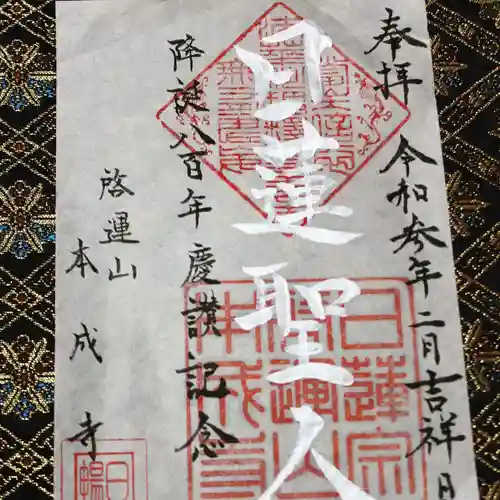 奉拝 令和参年二月吉祥日
日蓮聖人
降誕八百年慶讃記念
啓運山
本成寺